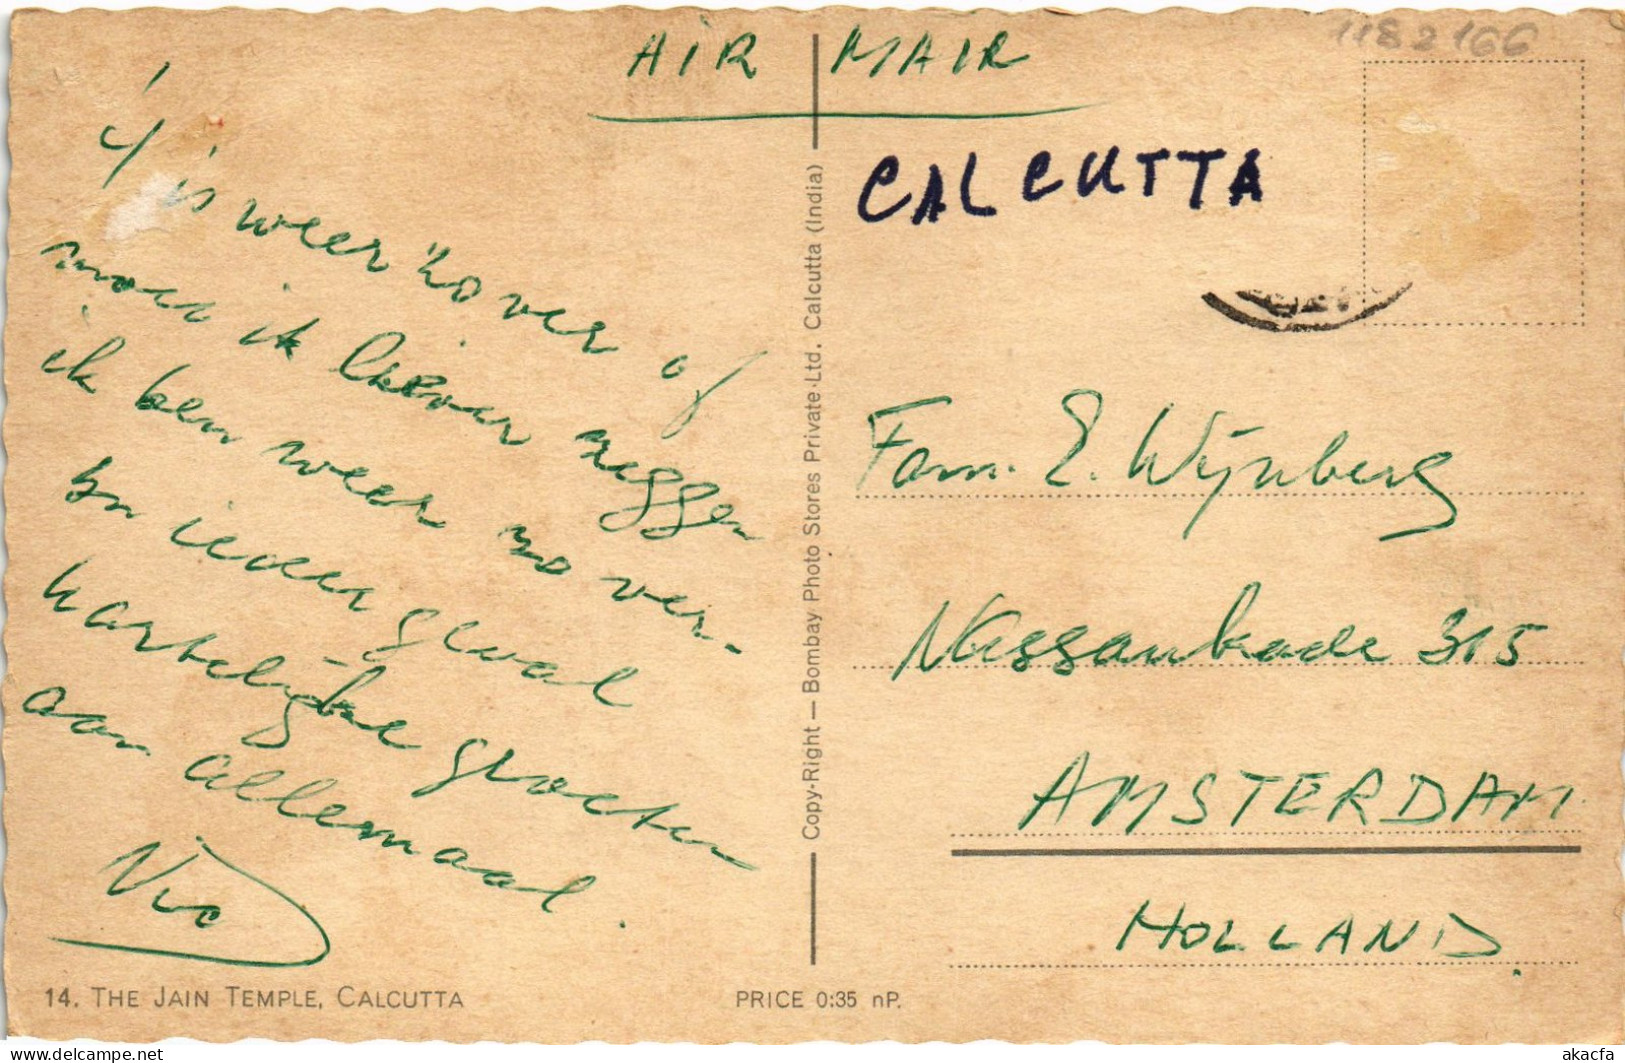 1182166
AIR MAIR
CALCUTTA
't is weer zo ver of
moet ik liever zeggen
ik ben weer zo ver.
In ieder geval
hartelijke groeten
aan allemaal.
Fam. E. Wijnberg
Nassaukade 315
AMSTERDAM
HOLLAND.
Copy-Right — Bombay Photo Stores Private Ltd. Calcutta (India)
14. THE JAIN TEMPLE, CALCUTTA
PRICE 0:35 nP.
delcampe.net
akacfa